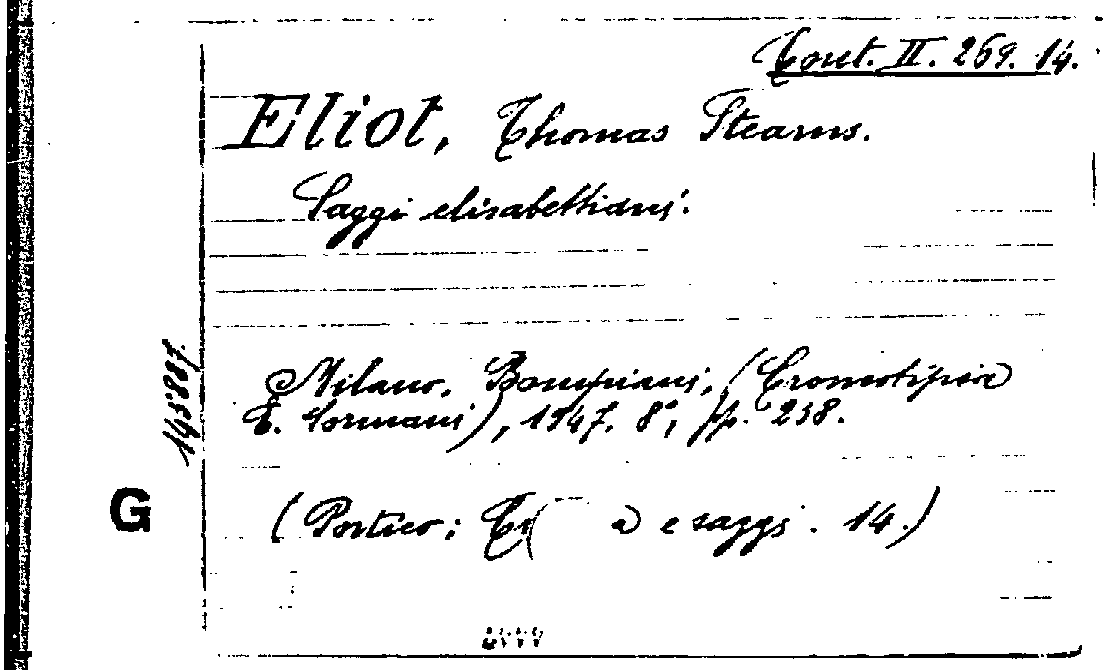 Cont. II. 269. 14.
Eliot, Thomas Stearns.
Saggi elisabettiani.
145.887
Milano, Bompiani, (Cromotipia
E. Sormani), 1947. 8°, pp. 238.
G
(Portico; a e saggi. 14.)